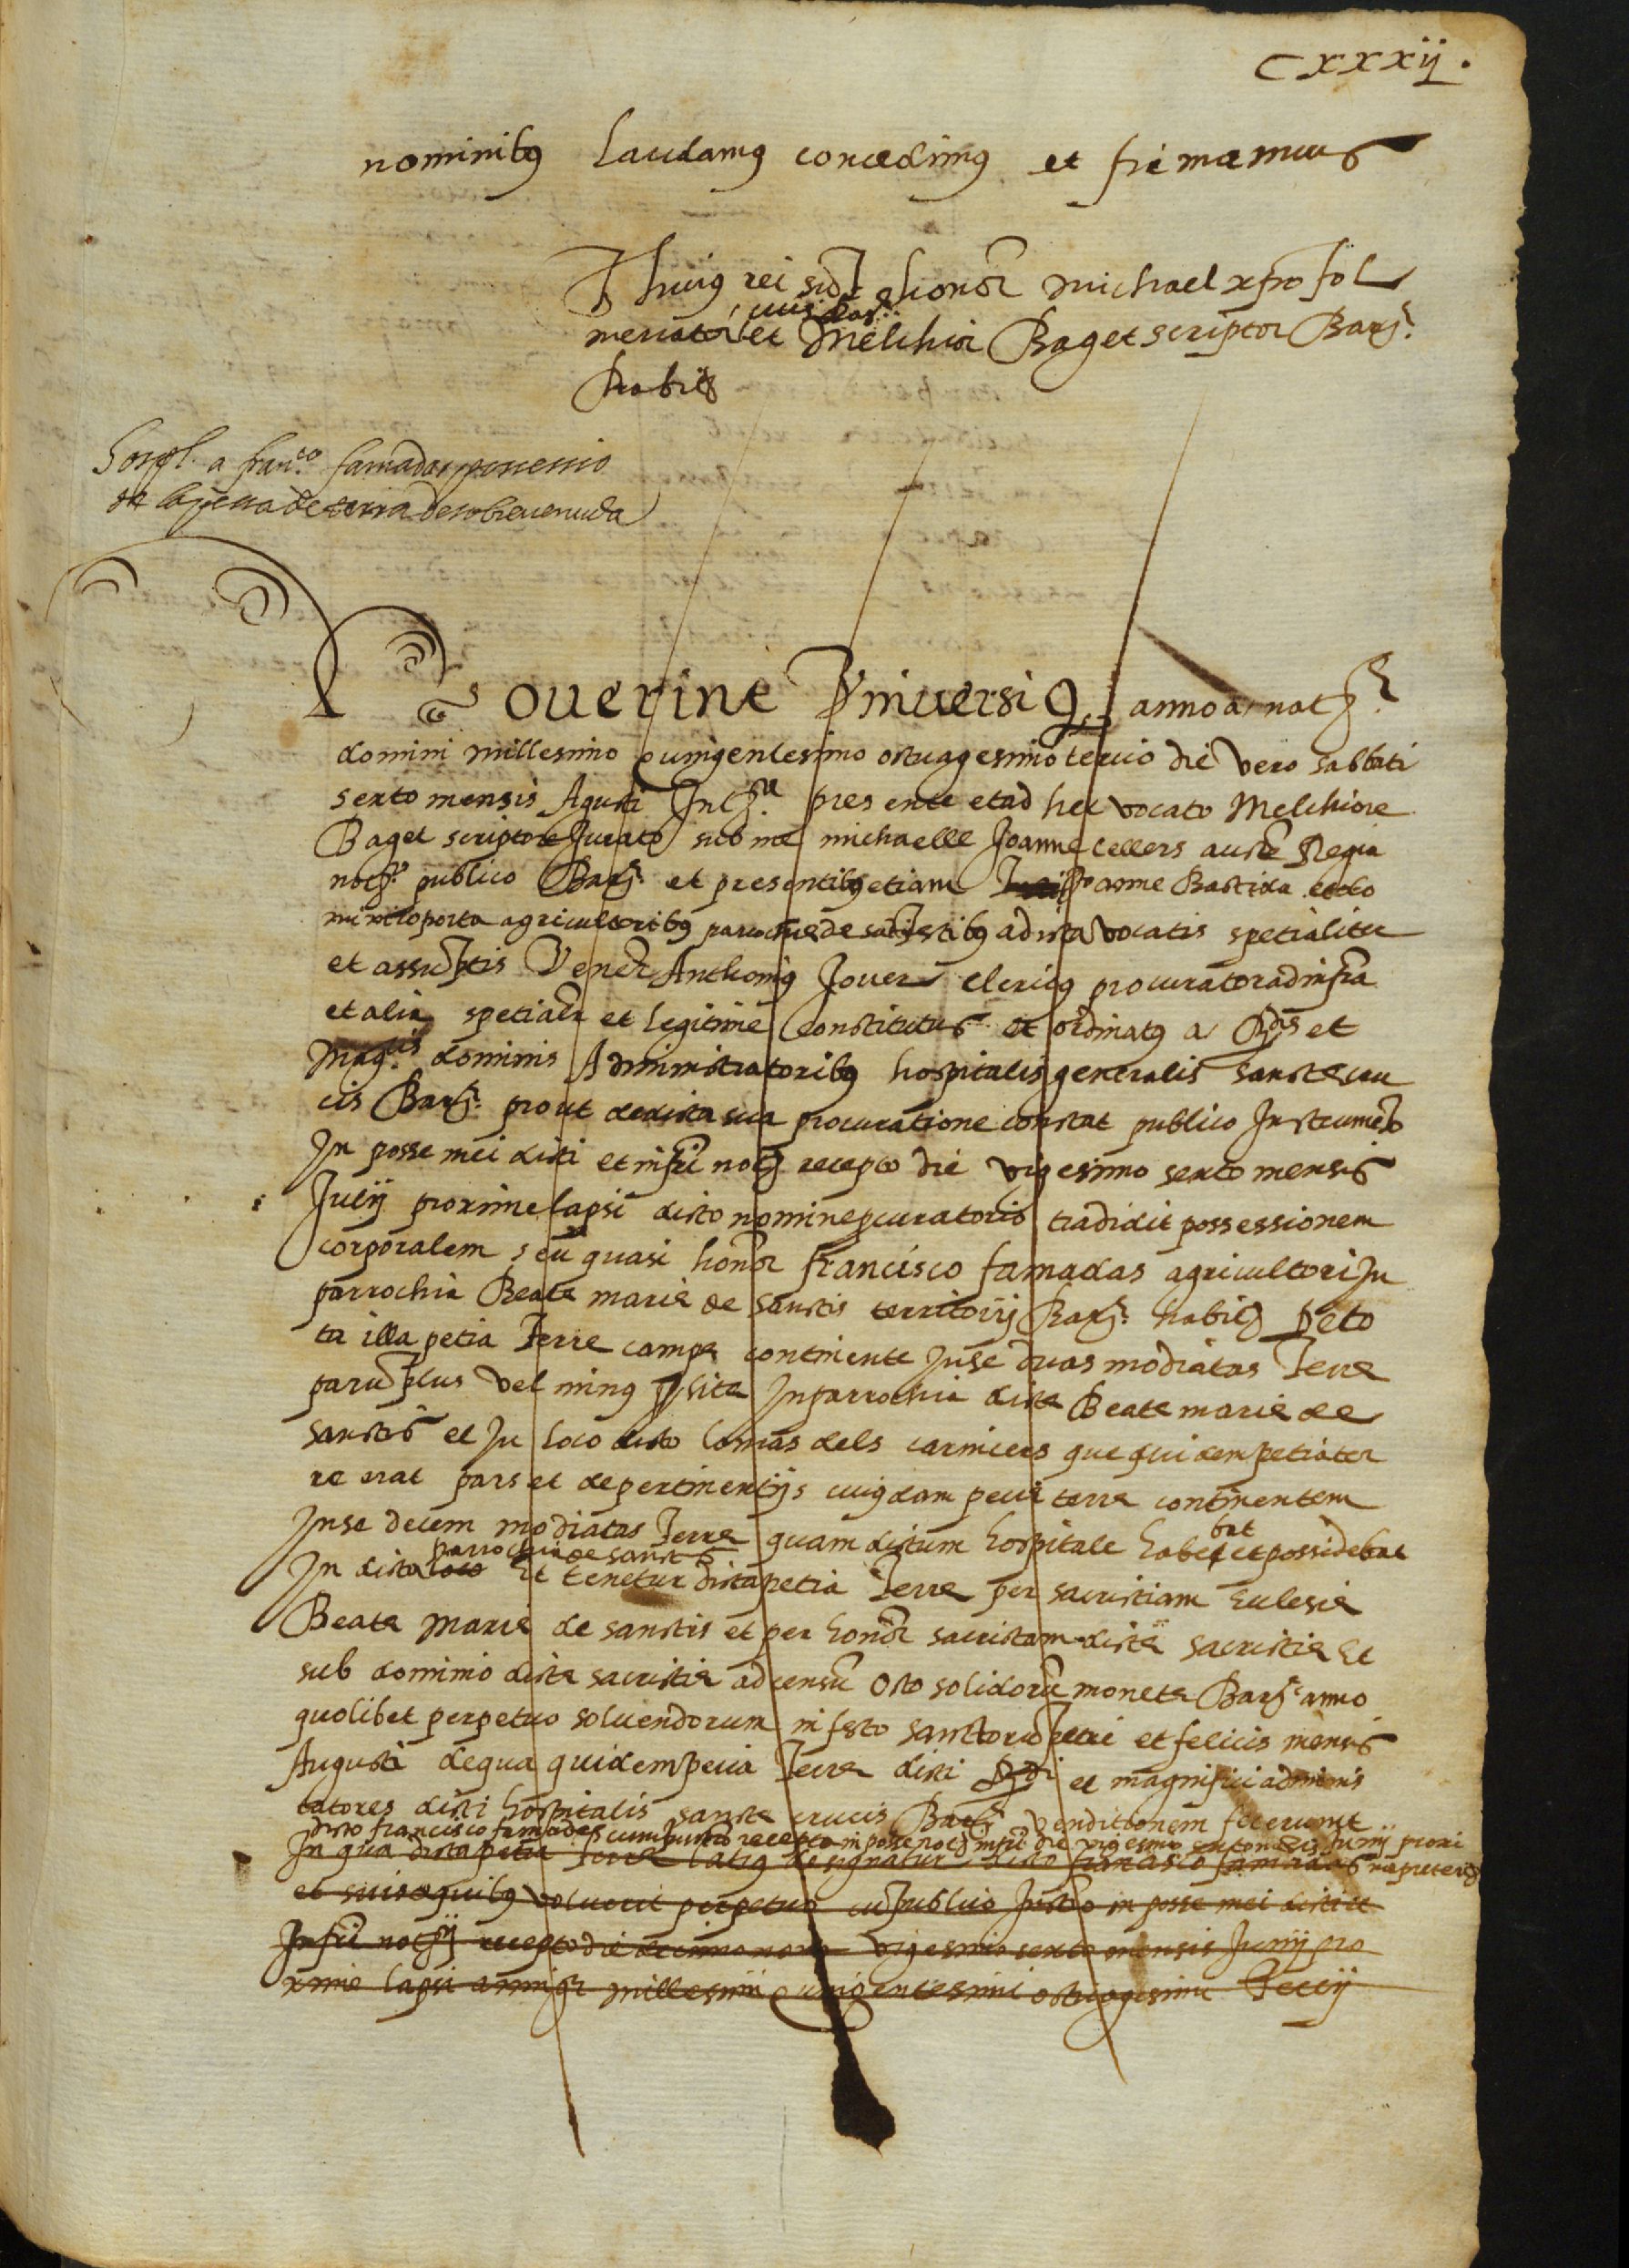 Cxxxij.
nominibꝯ Laudamꝯ concedimꝯ et firmamus
T huiꝯ rei sūt honor michael xpofol
mercator civis Bar et Melchior Baget scriptor Barꝫ
habitꝫ
a franco famadas possessio
de la pessa de terra de sobrevenuda
Noverint Universi Q annoa nat
domini millesimo quingentesimo octuagesimo tercio die vero sabbati
sexto mensis Agusti Int presente et ad hec vocato Melchiore
Baget scriptore Jurato sub me michaelle Joanne Cellers aucte Regia
notꝫ publico Barꝫ et presentibꝯ etiam Joanne Bastida
porta agricultoribꝯ parrochie de sanctis testibꝯ ad ista vocatis spetialiter
et assūptis Vener Anthoniꝯ Jover clericꝯ procurator ad infra
et alia spetialr et legitime constitutus et ordinatꝯ a Rdis et
Magcis dominis Administratoribꝯ hospitalis generalis sancte cru
cis Barꝫ prout de dicta sua procuratione constat publico Instrumēto
In posse mei dicti et infri notꝫ recepto die vigesimo sexto mensis
Julij proxime lapsi dicto nomine pcuratorio tradidit possessionem
corporalem seu quasi honor francisco famadas agricultori In
parrochia Beate marie de sanctis territorij Barꝫ habitꝫ De to
ta illa petia Terre campe continente In se duas modiatas Terre
parū plus vel minꝯ sita In parrochia dicte Beate marie de
sanctis et In loco dicto Comas dels carnicers que quidem petia ter
re erat pars et de pertinentijs cuiꝯdam pecie terre continentem
In se decem modiatas Terre quam dictum hospitale habebat et possidebat
In dicta loco parrochia de sanctis Et tenetur dicta petia Terre per sacristiam Eclesie
Beate Marie de sanctis et per honor sacristam dicte sacristie Et
sub dominio dicte sacristie ad censū Octo solidorū monete Barꝫ anno
quolibet perpetuo solvendorum in festo sanctorū Petri et felicis mensis
Augusti de qua quidem pecia Terre dicti Rdi et magnifici adminis
tatores dicti hospitalis sancte crucis Barꝫ venditionem fecerunt
dicto francisco famades cum instro recepto in posse notꝫ infri die vigesimo sexto mensis Junij proxi
In qua dicta petia Terre latiꝯ designatur dicto francisco famadas me preteritꝫ
et suis a quibꝯ voluerit perpetuo cū publico Instro in posse mei dicti et
Infri notꝫ recepto die decimo nono vigesimo sexto mensis Junij pro
xime lapsi anni millesimi quingentesimi octuagesimi Tercij